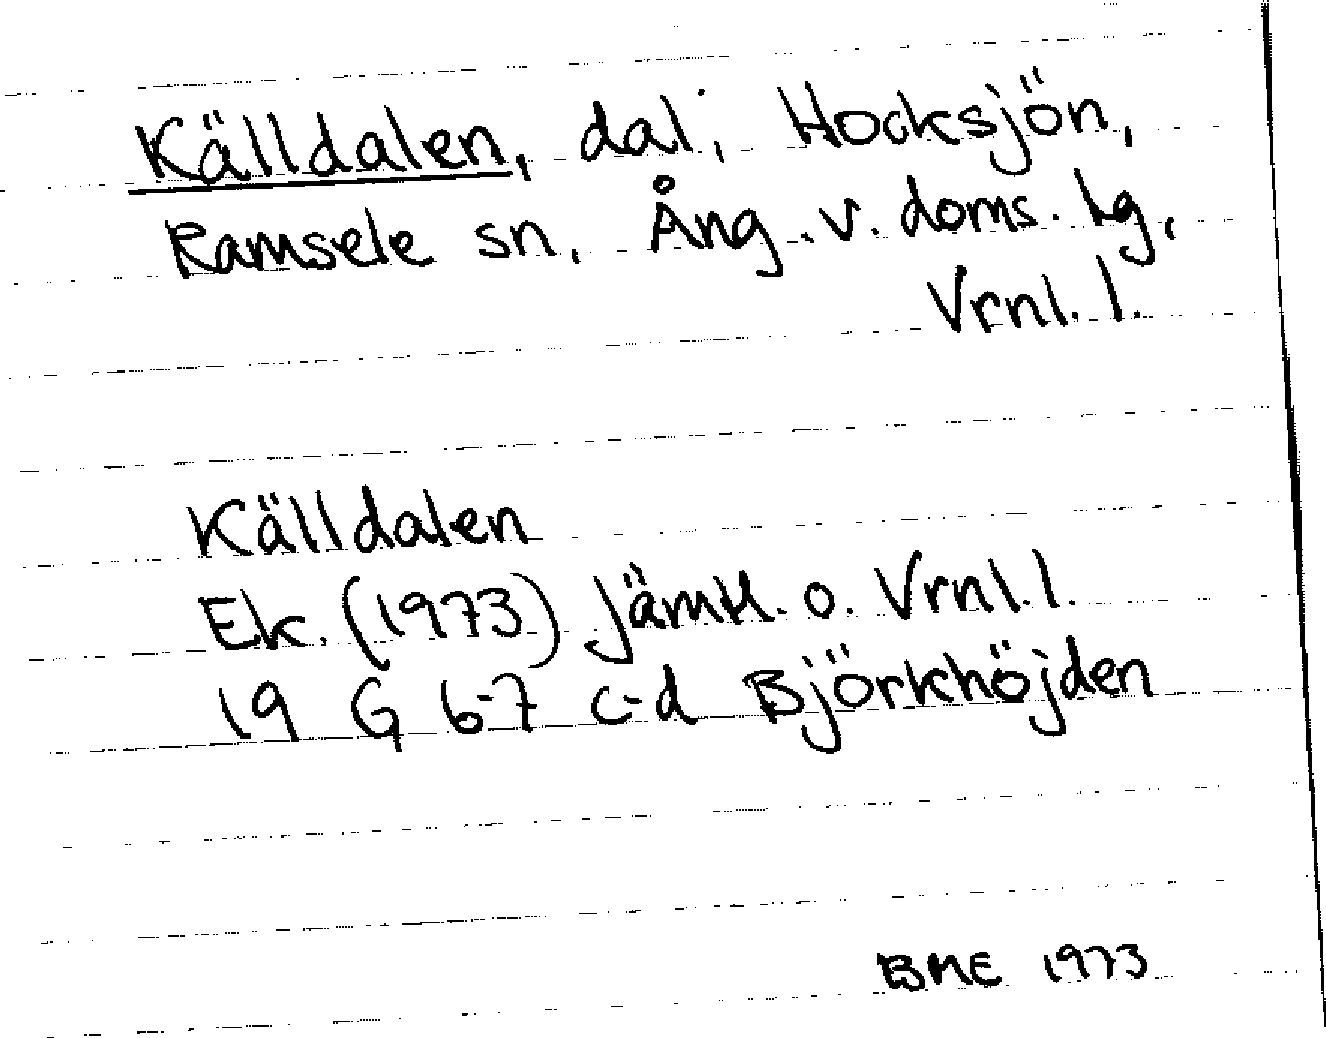 Källdalen, dal, Hocksjön,
Ramsele sn, Ång. v. doms. hg,
Vrnl. l.
Källdalen
Ek. (1973) Jämtl. o. Vrnl. l.
19 G 6-7 c-d Björkhöjden
BME 1973